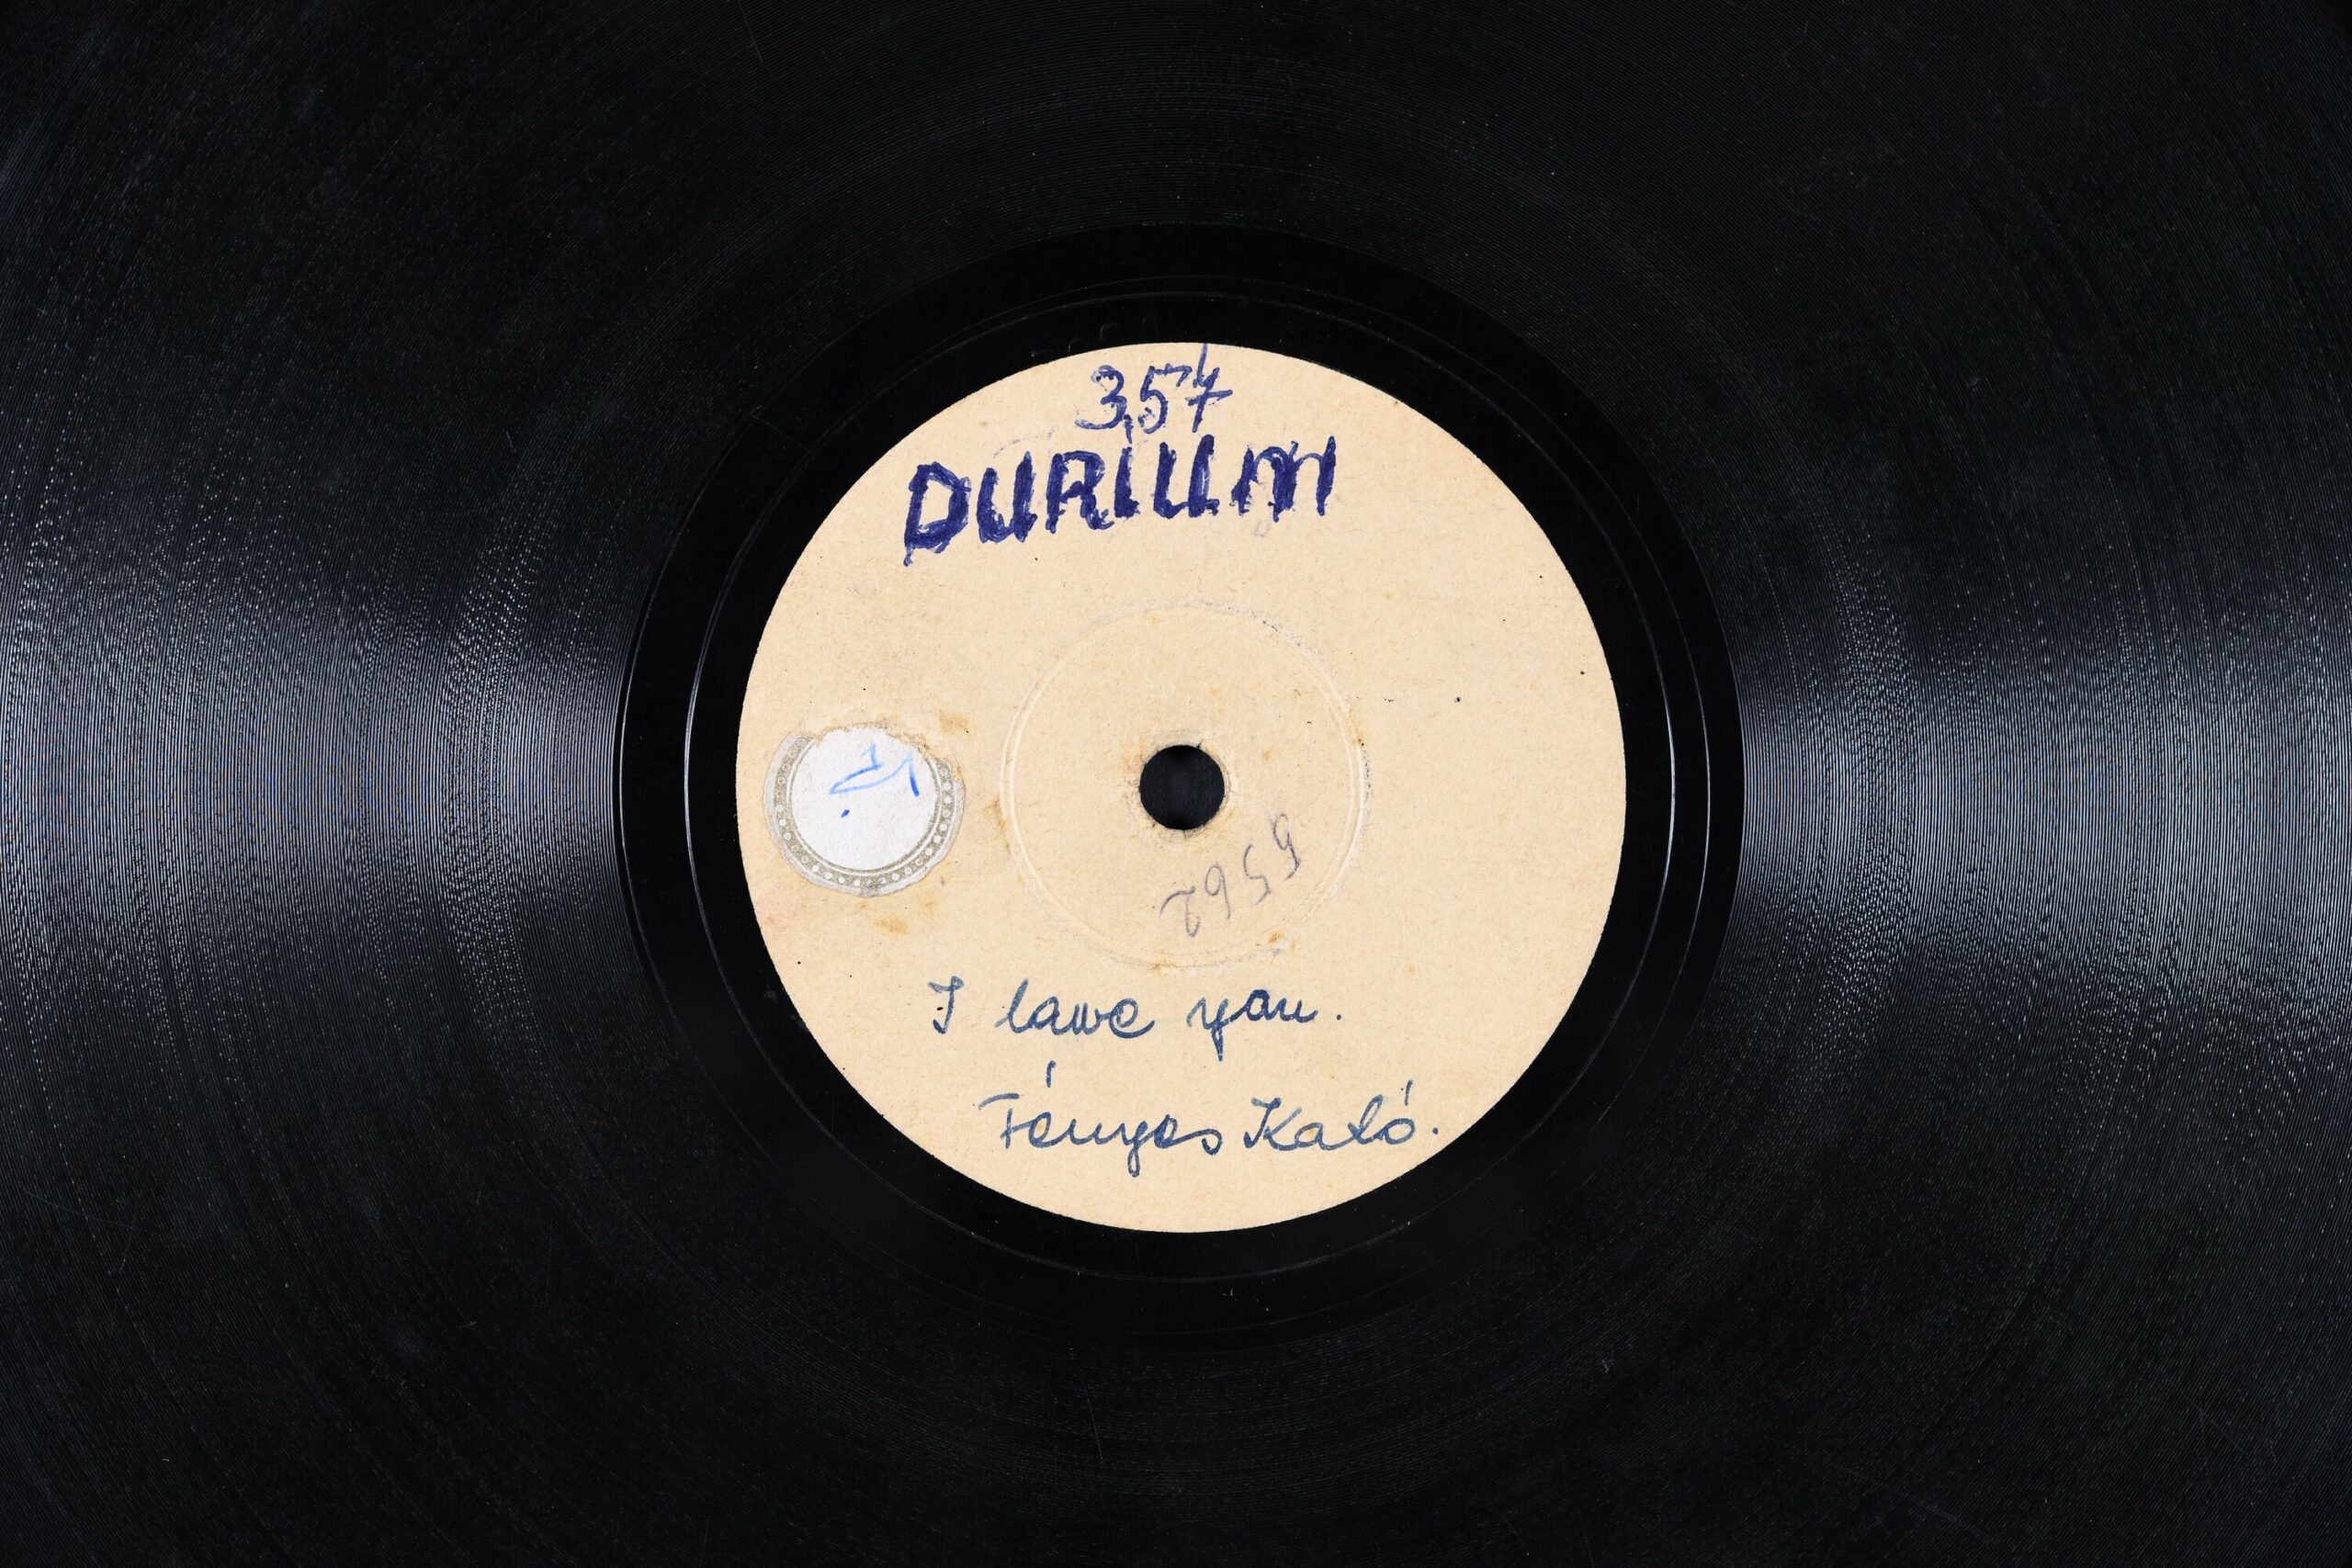 357
DURIUM
5562
I lawe you.
Fényes Kató.